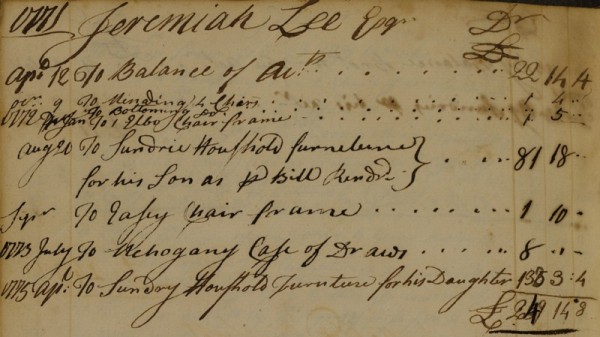 1771 Jeremiah Lee Esqr Dr
£
Apl 12 To Balance of Actt . . . . . . . . . 22 14 4
9 To Mending 4 Chairs 1 4
To Bottoming Do
1772 Jan To 1 Elbo Chair frame 1 5
Aug 20 To Sundrie Houshold furneture
for his Son as pr Bill Rendrd . . . . 81 18
Sepr To Easey Chair frame . . . . . . . . 1 10
1773 July To Mehogany Case of Draws . . . . . 8
1775 Apl To Sundry Houshold Furniture for his Daughter 3:4
£ 14 8